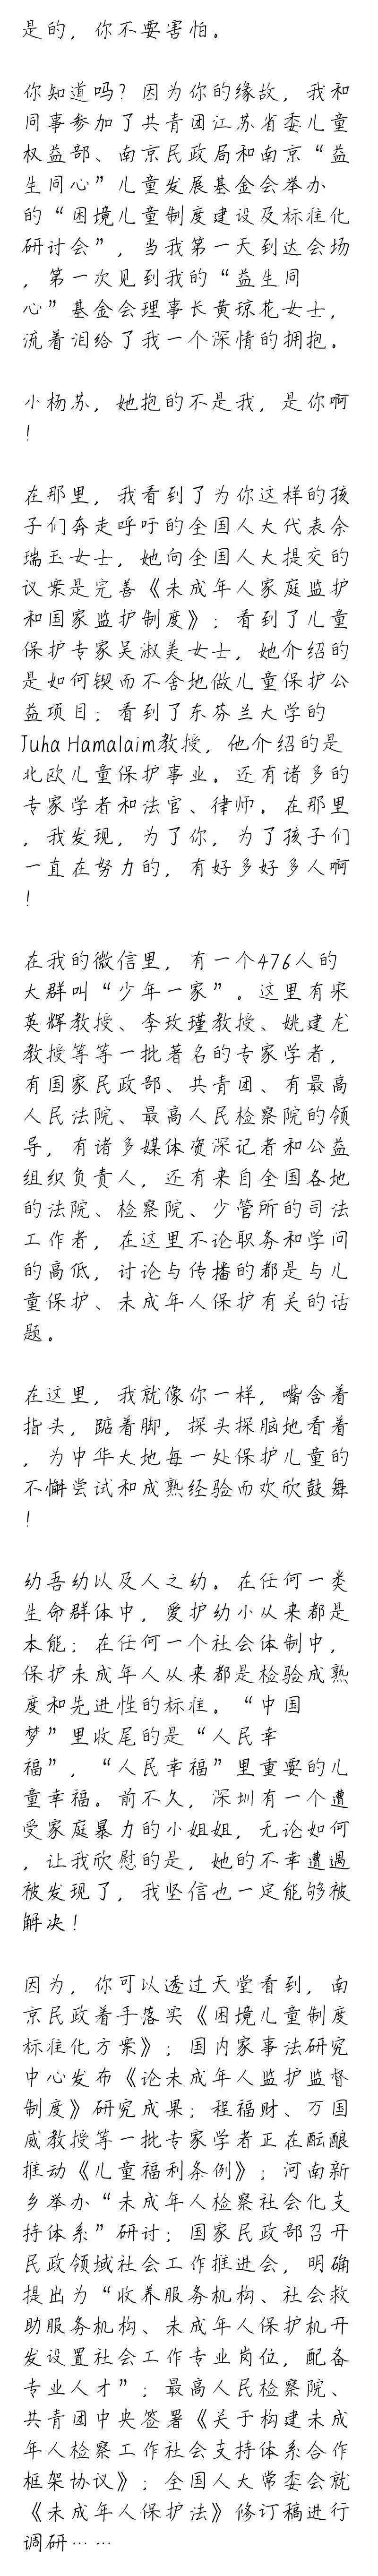 是的，你不要害怕。
你知道吗？因为你的缘故，我和
同事参加了共青团江苏省委儿童
权益部、南京民政局和南京“益
生同心”儿童发展基金会举办
的“困境儿童制度建设及标准化
研讨会”，当我第一天到达会场
，第一次见到我的“益生同
心”基金会理事长黄琼花女士，
流着泪给了我一个深情的拥抱。
小杨苏，她抱的不是我，是你啊
！
在那里，我看到了为你这样的孩
子们奔走呼吁的全国人大代表余
瑞玉女士，她向全国人大提交的
议案是完善《未成年人家庭监护
和国家监护制度》；看到了儿童
保护专家吴淑美女士，她介绍的
是如何锲而不舍地做儿童保护公
益项目；看到了东芬兰大学的
Juha Hamalaim教授，他介绍的是
北欧儿童保护事业。还有诸多的
专家学者和法官、律师。在那里
，我发现，为了你，为了孩子们
一直在努力的，有好多好多人啊
！
在我的微信里，有一个476人的
大群叫“少年一家”。这里有宋
英辉教授、李玫瑾教授、姚建龙
教授等等一批著名的专家学者，
有国家民政部、共青团、有最高
人民法院、最高人民检察院的领
导，有诸多媒体资深记者和公益
组织负责人，还有来自全国各地
的法院、检察院、少管所的司法
工作者，在这里不论职务和学问
的高低，讨论与传播的都是与儿
童保护、未成年人保护有关的话
题。
在这里，我就像你一样，嘴含着
指头，踮着脚，探头探脑地看着
，为中华大地每一处保护儿童的
不懈尝试和成熟经验而欢欣鼓舞
！
幼吾幼以及人之幼。在任何一类
生命群体中，爱护幼小从来都是
本能；在任何一个社会体制中，
保护未成年人从来都是检验成熟
度和先进性的标准。“中国
梦”里收尾的是“人民幸
福”，“人民幸福”里重要的儿
童幸福。前不久，深圳有一个遭
受家庭暴力的小姐姐，无论如何
，让我欣慰的是，她的不幸遭遇
被发现了，我坚信也一定能够被
解决！
因为，你可以透过天堂看到，南
京民政着手落实《困境儿童制度
标准化方案》；国内家事法研究
中心发布《论未成年人监护监督
制度》研究成果；程福财、万国
威教授等一批专家学者正在酝酿
推动《儿童福利条例》；河南新
乡举办“未成年人检察社会化支
持体系”研讨；国家民政部召开
民政领域社会工作推进会，明确
提出为“收养服务机构、社会救
助服务机构、未成年人保护机开
发设置社会工作专业岗位，配备
专业人才”；最高人民检察院、
共青团中央签署《关于构建未成
年人检察工作社会支持体系合作
框架协议》；全国人大常委会就
《未成年人保护法》修订稿进行
调研……